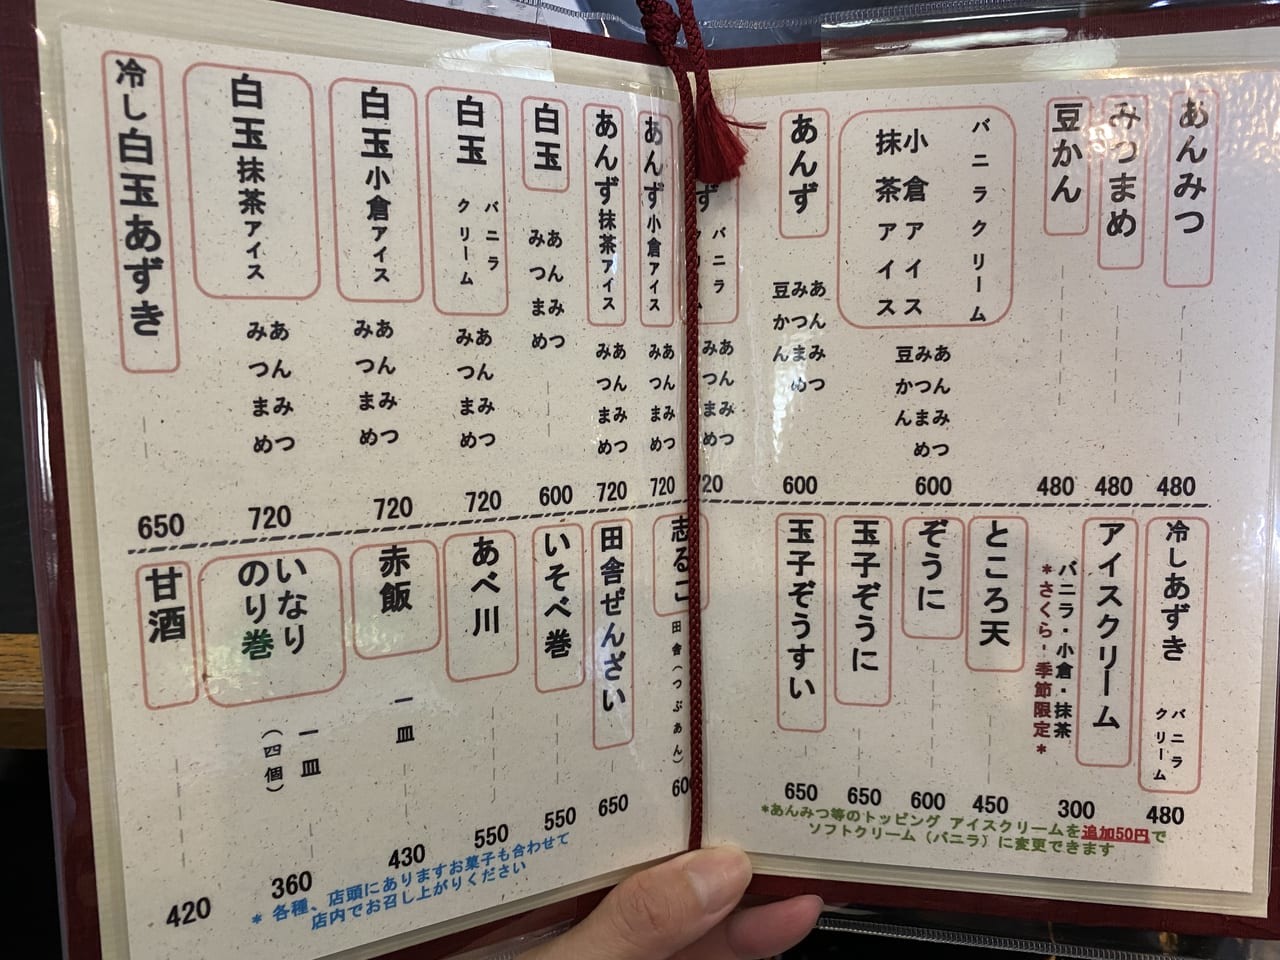 あんみつ 480
みつまめ 480
豆かん 480
バニラクリーム
小倉アイス
抹茶アイス
あんみつ
みつまめ
豆かん
600
あんず
あんみつ
みつまめ
豆かん
600
ず バニラ
あんみつ
みつまめ
720
あんず小倉アイス
あんみつ
みつまめ
720
あんず抹茶アイス
あんみつ
みつまめ
720
白玉
あんみつ
みつまめ
600
白玉 バニラクリーム
あんみつ
みつまめ
720
白玉小倉アイス
あんみつ
みつまめ
720
白玉抹茶アイス
あんみつ
みつまめ
720
冷し白玉あずき 650
冷しあずき バニラクリーム 480
アイスクリーム
バニラ・小倉・抹茶
*さくら・季節限定*
300
ところ天 450
ぞうに 600
玉子ぞうに 650
玉子ぞうすい 650
*あんみつ等のトッピング アイスクリームを追加50円で
ソフトクリーム（バニラ）に変更できます
志るこ 田舎（つぶあん） 600
田舎ぜんざい 650
いそべ巻 550
あべ川 550
赤飯 一皿 430
いなり
のり巻
一皿
（四個）
360
甘酒 420
* 各種、店頭にありますお菓子も合わせて
店内でお召し上がりください